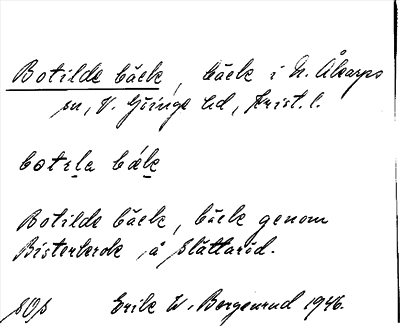 Botilde bäck, bäck i N. Åkarps
sn, V. Göinge hd, Krist. l.
botɪla bæ̀k
Botilde bäck, bäck genom
Bisterkrok, å Slättaröd.
SOS Erik W. Bergenrud 1946.